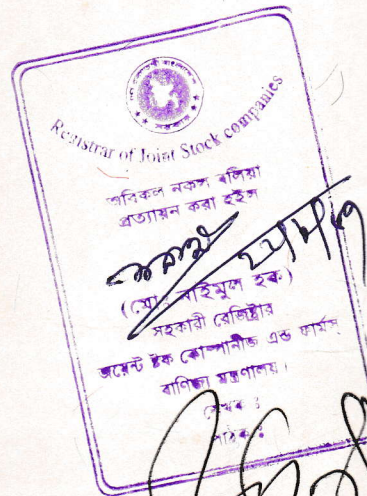 Registrar of Joint Stock companies
অবিকল নকল বলিয়া
প্রত্যায়ন করা হইল
(মোঃ নাইমুল হক)
সহকারী রেজিষ্ট্রার
জয়েন্ট ষ্টক কোম্পানীজ এন্ড ফার্মস্
বাণিজ্য মন্ত্রণালয়।
লেখক ঃ
পাঠক ঃ